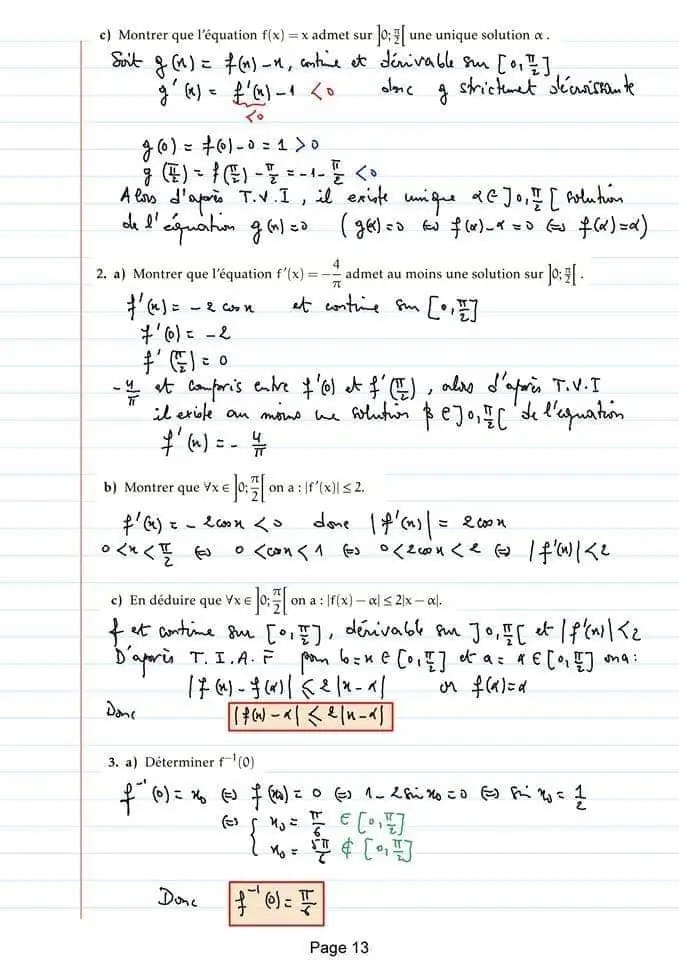 c) Montrer que l'équation f(x) = x admet sur ]0; π/2[ une unique solution α .
Soit g(x) = f(x) - x, continue et dérivable sur [0, π/2]
g'(x) = f'(x) - 1 < 0 donc g strictement décroissante
< 0
g(0) = f(0) - 0 = 1 > 0
g(π/2) = f(π/2) - π/2 = -1 - π/2 < 0
Alors d'après T.V.I, il existe unique α ∈ ]0, π/2[ solution
de l'équation g(x) = 0 (g(α) = 0 ⇔ f(α) - α = 0 ⇔ f(α) = α)
2. a) Montrer que l'équation f′(x) = -4/π admet au moins une solution sur ]0; π/2[ .
f'(x) = -2 cos x et continue sur [0, π/2]
f'(0) = -2
f'(π/2) = 0
-4/π et compris entre f'(0) et f'(π/2), alors d'après T.V.I
il existe au moins une solution β ∈ ]0, π/2[ de l'équation
f'(x) = -4/π
b) Montrer que ∀x ∈ ]0; π/2[ on a : |f′(x)| ≤ 2.
f'(x) = -2 cos x < 0 donc |f'(x)| = 2 cos x
0 < x < π/2 ⇔ 0 < cos x < 1 ⇔ 0 < 2 cos x < 2 ⇔ |f'(x)| < 2
c) En déduire que ∀x ∈ ]0; π/2[ on a : |f(x) - α| ≤ 2|x - α|.
f et continue sur [0, π/2], dérivable sur ]0, π/2[ et |f'(x)| < 2
D'après T.I.A.F pour b = x ∈ [0, π/2] et a = α ∈ [0, π/2] on a :
|f(x) - f(α)| ≤ 2|x - α| or f(α) = α
Donc |f(x) - α| ≤ 2|x - α|
3. a) Déterminer f⁻¹(0)
f⁻¹(0) = x₀ ⇔ f(x₀) = 0 ⇔ 1 - 2 sin x₀ = 0 ⇔ sin x₀ = 1/2
⇔ { x₀ = π/6 ∈ [0, π/2]
x₀ = 5π/6 ∉ [0, π/2]
Donc f⁻¹(0) = π/6
Page 13